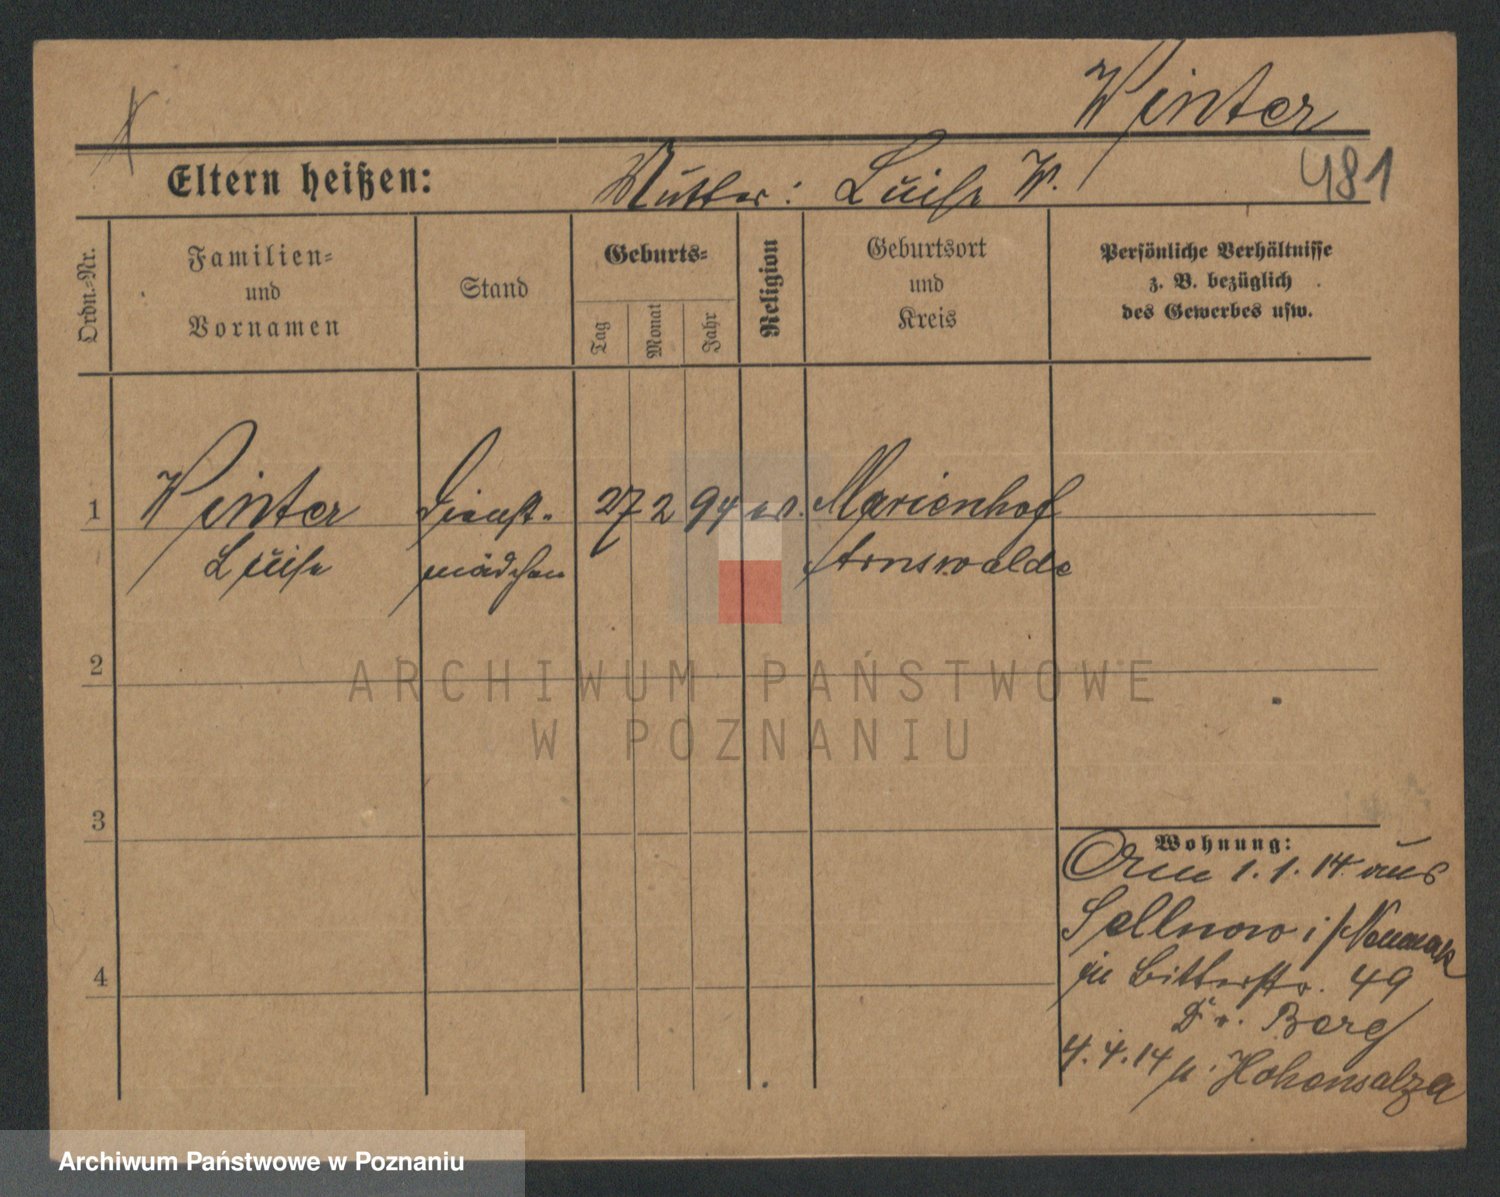 Winter
Eltern heißen: Mutter: Luise W.
481
Ordn.-Nr.
Familien-
und
Vornamen
Stand
Geburts-
Tag
Monat
Jahr
Religion
Geburtsort
und
Kreis
Persönliche Verhältnisse
z. B. bezüglich
des Gewerbes usw.
1 Winter Dienst- 27 2 94 ev. Marienhof
Luise mädchen Arnswalde
2
3
4
Wohnung:
1.1.14 aus
Sellnow i/Neumark
in Bitterstr. 49
Dr. Berg
4.4.14 n. Hohensalza
ARCHIWUM PAŃSTWOWE
W POZNANIU
Archiwum Państwowe w Poznaniu